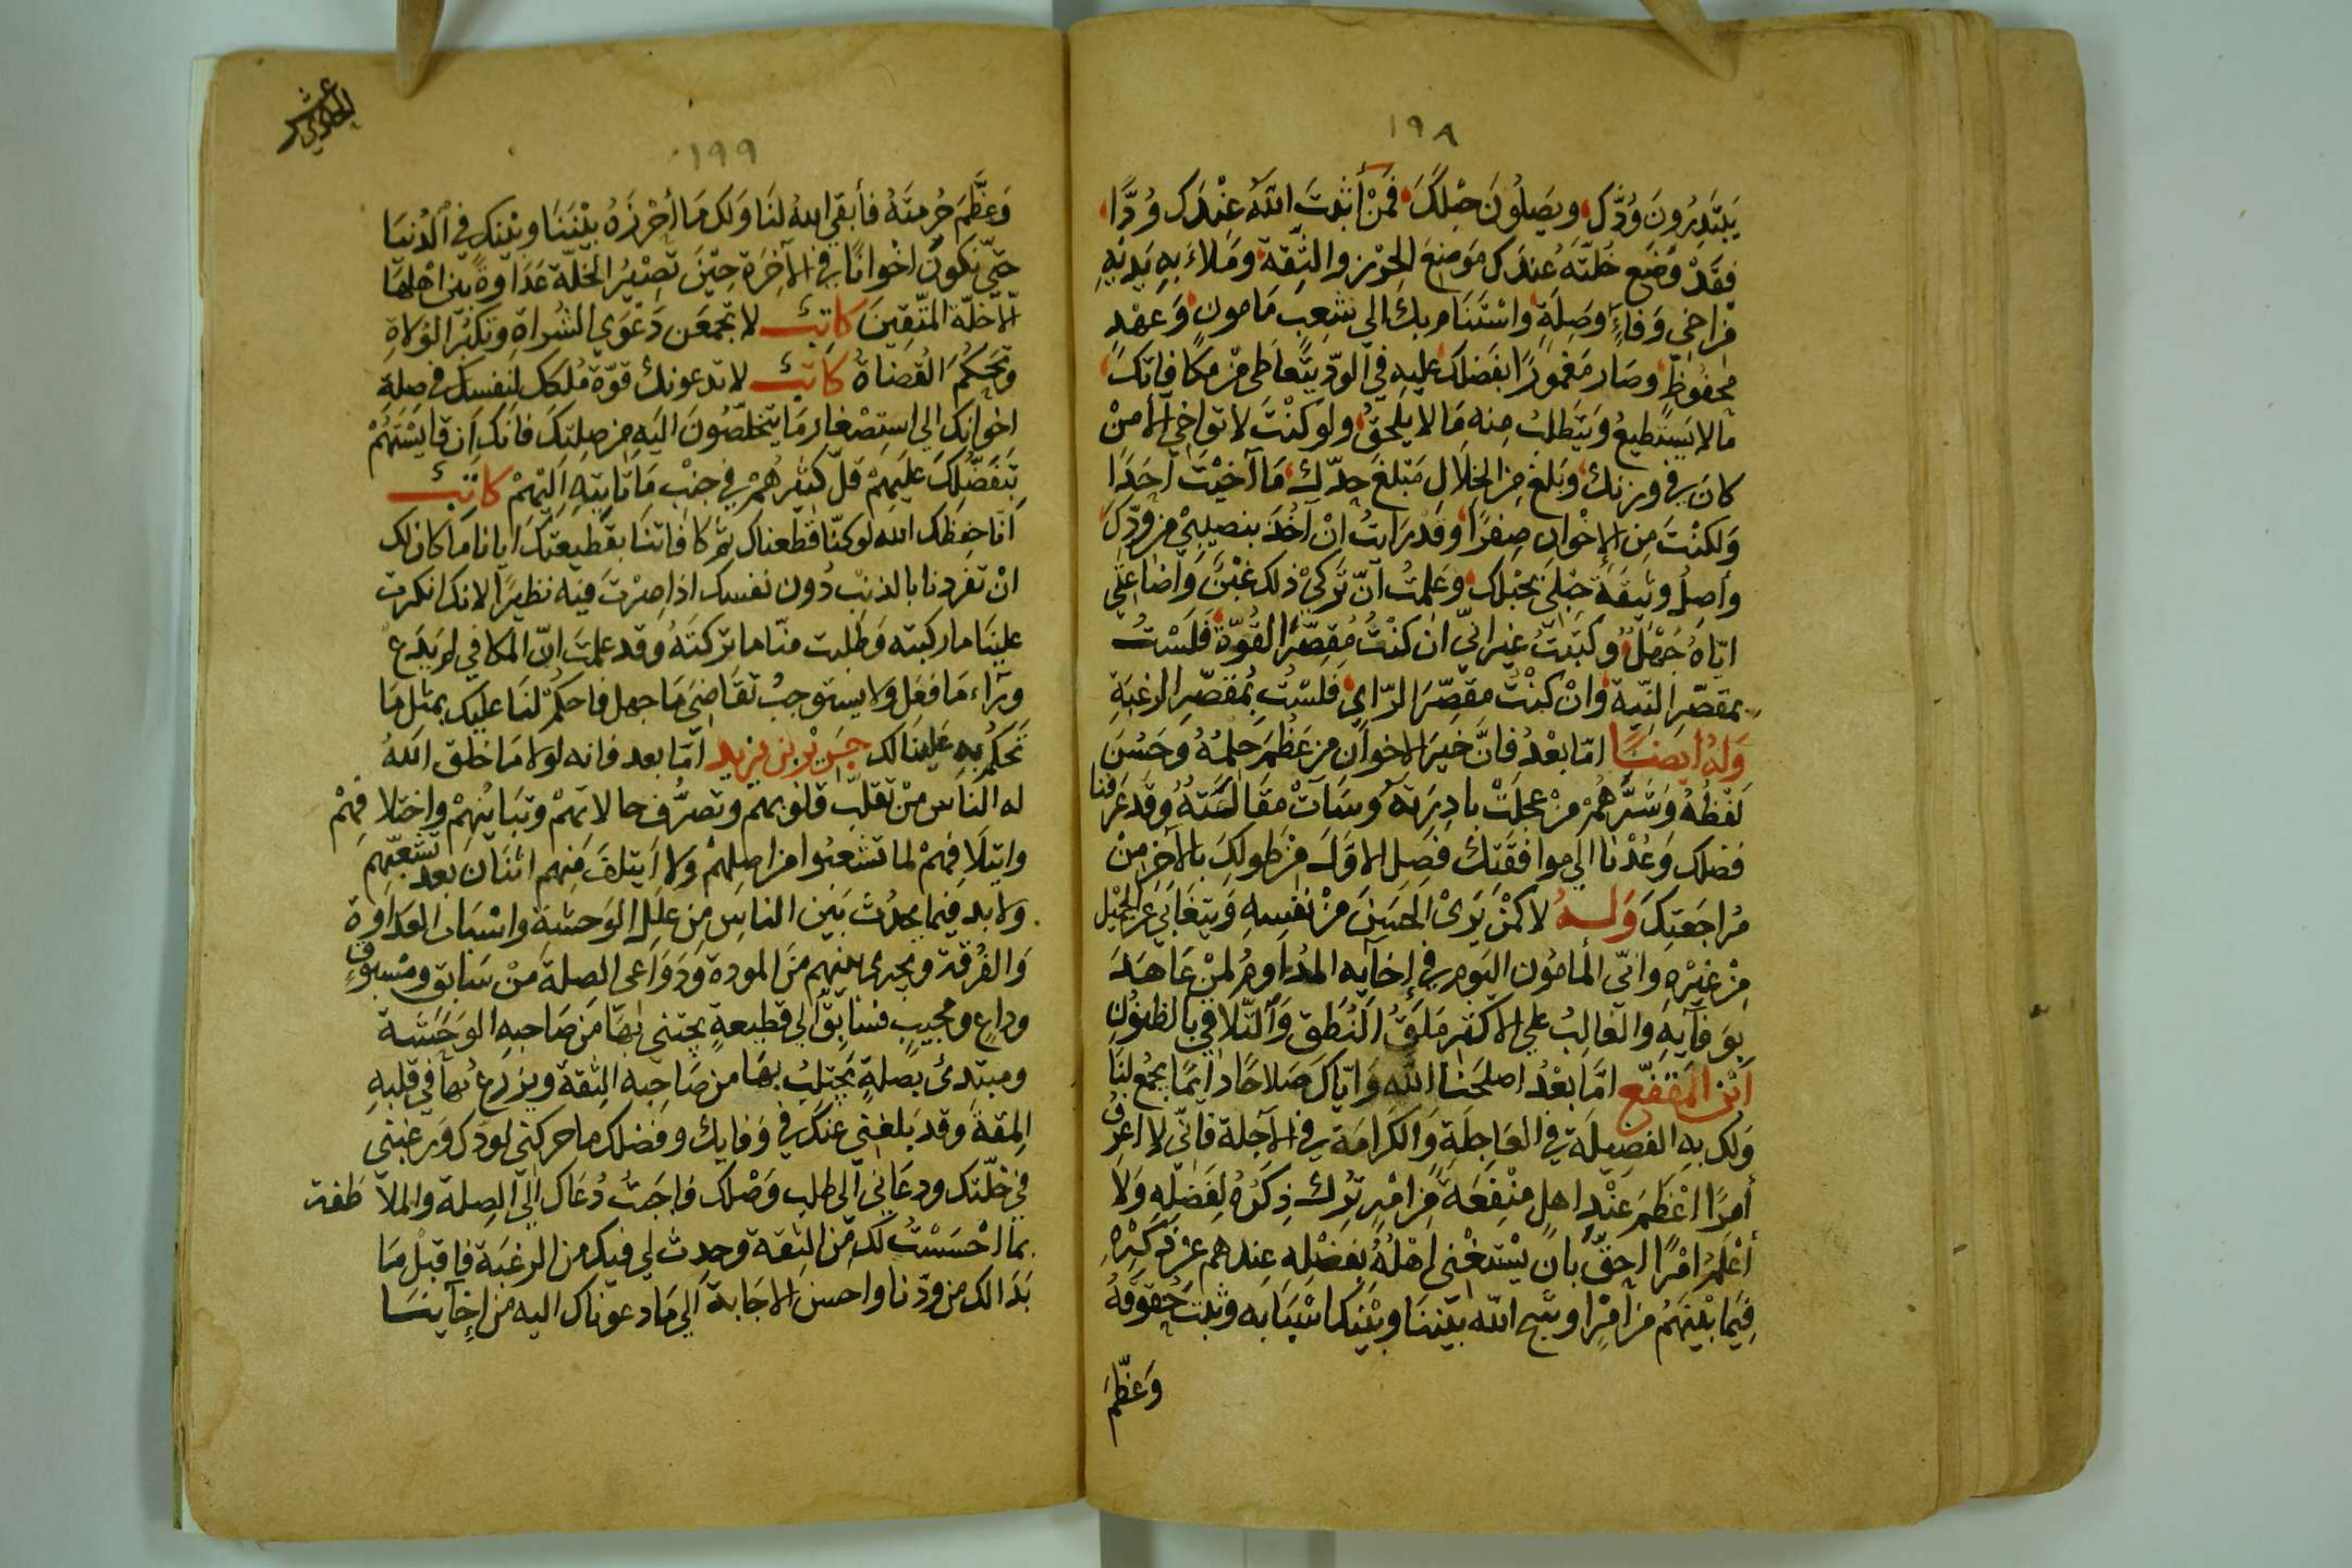 ١٩٨
يَبتَدِرُونَ وُدَّكَ ويَصِلُونَ حبْلَكَ فَمَنْ أثبتَ اللّه عِنْدَك وُدًّا
فقَدْ وَضَع خُلّتَهُ عِندَك مَوضِعَ الحِرْزِ والثِّقَة ومَلاءَ بِهِ يَدَيْهِ
مِن اخي وَفاءٍ وصِلَةٍ واسْتَنَام بك الى شعبٍ مَامونٍ وَعَهْدٍ
محفُوظٍ وصَار مَغمورًا بفَضلك عليهِ في الودّ يتَعاطى مِنْ مكافاتك
مالا يَستَطيعُ وَيَتَطلبُ مِنه مَا لا يلحقُ ولو كنْتَ لا تواخي الا مَنْ
كانَ في وزنك وبَلغ مِنَ الخِلَالِ مَبلغَ حدّك مَا آخَيْتَ احَدًا
وَلكنْتَ مِن الإخْوان صِفرًا وقدْ رَايتُ انْ آخذَ بنصيبي من ودّك
وأصِلُ وثيقَةَ حَبْلِي بحَبْلك وعَلمتُ انّ تَركيْ ذلك غَبْنٌ وَاضاعتي
ايّاهُ جَهْلٌ وكتَبْتُ غيرَ انّي ان كنْتُ مُقصِّرَ القُوّة فَلَسْتُ
بمقصّر النّيّة وانْ كنْتُ مقصِّرَ الرّاي فلسْتُ بمُقصّرِ الرغبَةِ
وَلهُ ايضًا امّا بعْدُ فانَّ خيرَ الاخوان من عَظُمَ حِلمُهُ وحَسُنَ
لَفْظهُ وَشَرَّهُمْ مَنْ عجلَتْ بادِرَتهُ وسَآتْ مقَالَتهُ وقد عَرفنا
فضلك وَعُدْنا الى موافقتك فصِل الاوّل مِنْ طولكَ بالآخرِ مِنْ
مُراجَعتِكَ وَلــهُ لا كمَنْ يَرَى الحسَنَ مِنْ نَفسِهِ وَيتغَابَى عن الجميْل
مِنْ غيْرِهِ وانّي المامُون اليَوم في إخآيه المدَاوِمُ لمنْ عَاهَدَ
بوَفآيهِ والغالِبُ على الاكثرِ مَلقُ النُطق وَالتّلافي بالظنُونِ
ابْن المقَفّع امّا بعْدُ اصلحَنا اللّه وَايّاكَ صَلاحًا دايمًا يجمَعُ لنَا
وَلك بِهِ الفضيلَة في العَاجلَة وَالكَرامَة في الآجلة فانّي لا اعرفُ
أمرًا اعْظمَ عنْدَ اهلِهِ منْفعَةً مِن امْرٍ تُرِكَ ذِكرُهُ لِفَضلِهِ وَلَا
أعْلمُ امْرًا احقَّ بان يْستَغْني اهْلهُ بفضْلِهِ عندهم عن ذِكرِهِ
فيمَا بيْنهُم من امْرٍ وشج اللّه بيْننَا وبيْنك اسْبَابه وثبت حُقوقهُ
وَعظَّم
١٩٩
وَعَظّمَ حُرمتَهُ فأبقى اللهُ لَنَا وَلك مَا أحْرزَهُ بيْنَنَا وبيْنك في الدُنيَا
حتّى نكونَ اخْوانًا في الآخِرَة حِيْنَ تَصِيْرُ الخلّة عَدَاوةً بين اهْلهَا
الّا خلّة المتّقِينَ كاتِبٌ لا تجمَعَن دَعْوَى الشُراةِ وتكبُّر الوُلاةِ
وتَحكُّمَ القُضاةُ كاتبٌ لا تدعونك قوّة مُلكك لنفسك في صلة
اخوانك الى استصْغارِ مَا يتخلّصُونَ اليَهِ من صِلتِكَ فانّك ان قايَسْتَهُمْ
بتَفَضُّلِكَ عليَهِمْ قلّ كثيرهُمْ في جنْب مَا تاتيَه اليَهمْ كاتبٌ
انّا حفِظَك اللّه لو كنّا قطعناك ثم كافاتنا بقَطيعَتك ايانا مَا كان لك
انْ تفردنا بالذنْب دُون نفسك اذا صرْت فيه نظيرًا لانك انكرت
علينَا ما ركبته وَطلبت منّا ما تركتَهُ وقد علمت انّ المكافي لم يَدع
ورآء مَا فعَل ولا يستوجبُ تقاضيَ مَا جهل فاحكم لنَا عليَك بمثل مَا
تَحكُم بِهِ عَلينَا لك جرِيْر بْن يزيد امّا بعد فانه لولا مَا خلق اللهُ
له النّاس مِنْ تقلّب قلوبهم وتصرُّف حالاتهمْ وتَبَايُنهِمْ واختلافهِمْ
وايتلَافِهِمْ لما تشعبُوا من اصلِهمْ ولا ايتلفَ منهم اثنَان بعد تشعّبهم
ولا بد فيما يحدُث بَين الناسَ مِن عللِ الوَحشة واسْبابِ العدَاوة
وَالفُرقة ويجرى بينهم منَ المودة وَدَوَاعى الصلة مِنْ سَابقٍ ومسْبوقٍ
وداعٍ ومجيبٍ فسَابِقٌ الى قطيعةٍ يجتنى بهَا مِن صَاحبهِ الوَحشَة
ومبتدئ بصلةٍ يَجتلبُ بهَا من صَاحبه الثقة ويزرعُ بها في قلبهِ
المِقةَ وقد بَلغني عنكَ في وَفايك وفضلك ما حركني لودّك وَرغبني
في خلّتك ودعَاني الى طلب وَصْلك فاجبتُ دُعَاك الى الصِلة والملاطفة
بما احْسَسْتُ لك مِن الثِقة وحدث لي فيك من الرغبَة فاقبلْ مَا
بَذالك من ودّنا واحسن الاجَابة الى مَا دعوناك اليه من إخآينَا